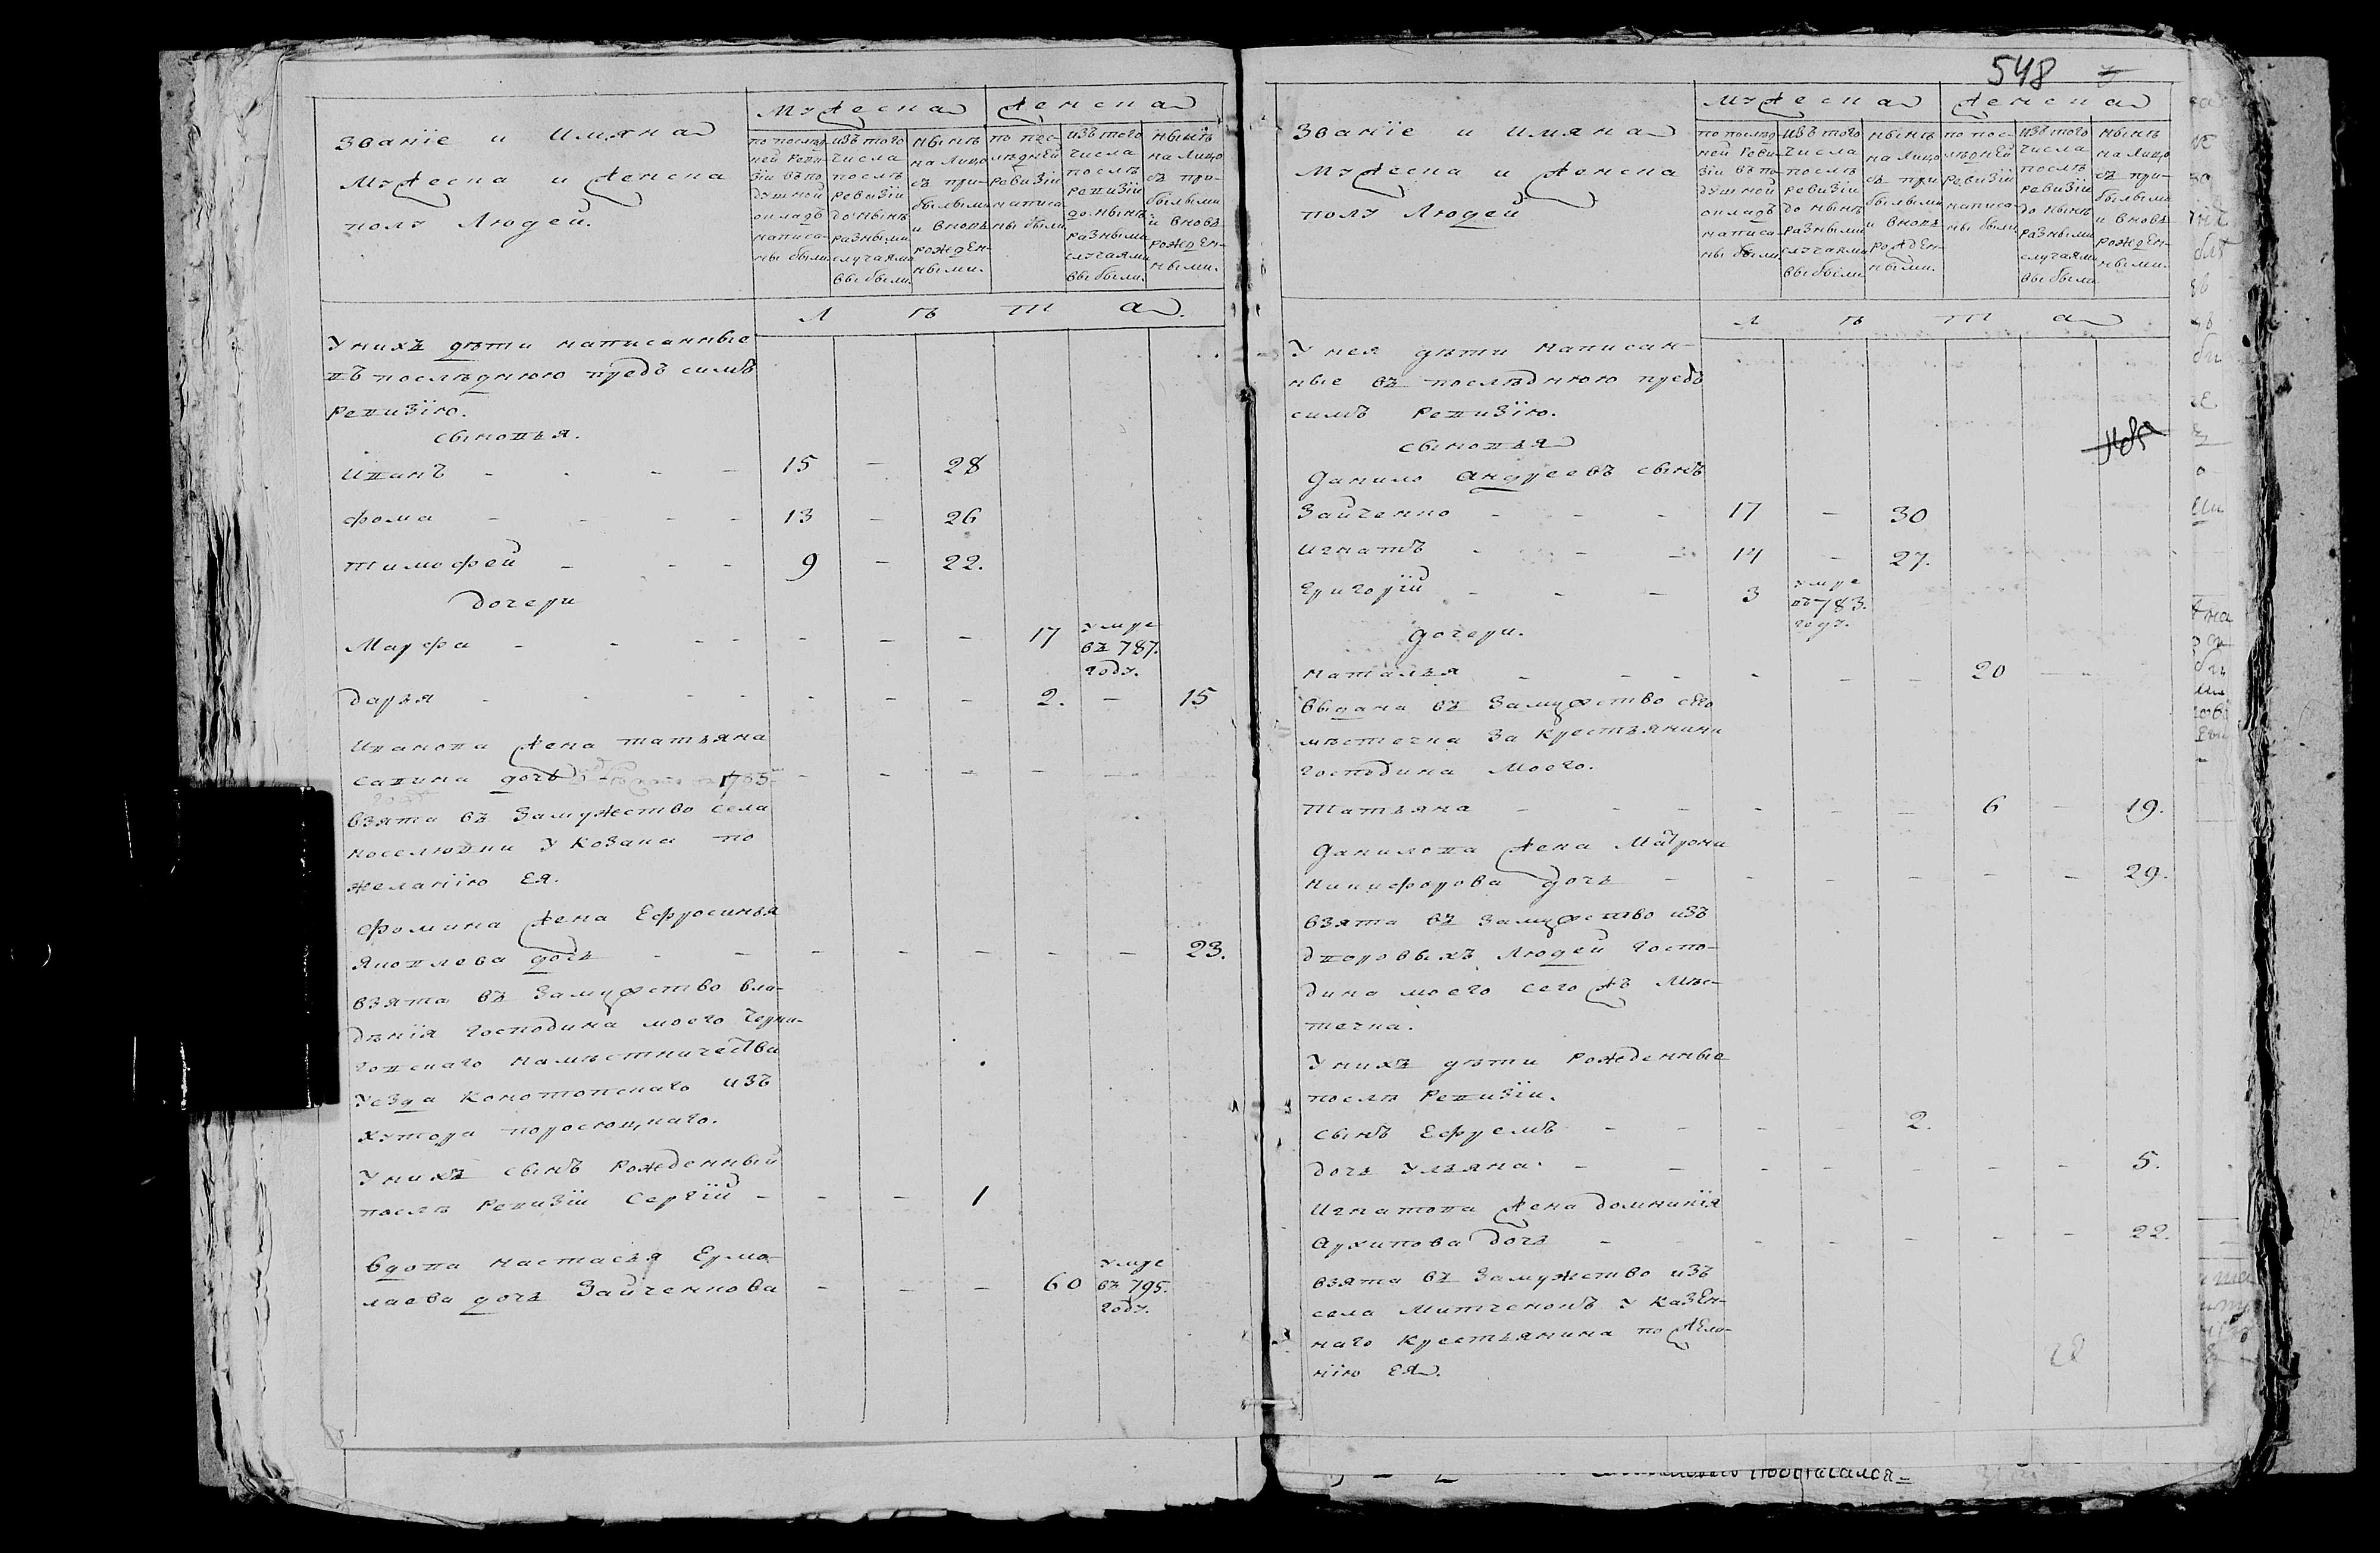 548
Званіе и Имяна
Мужеска и Женска
полу Людей.
Мужеска
Женска
по послед-
ней Реви-
зіи въ по-
душной
окладъ
написа-
ны были
изъ того
числа
послѣ
Ревизіи
до нынѣ
разными
случаями
выбыли.
нынѣ
на Лицо
съ при-
былыми
и вновь
рожден-
ными.
по пос-
лѣдней
Ревизіи
написа-
ны были
изъ того
числа
послѣ
Ревизіи
до нынѣ
разными
случаями
выбыли.
нынѣ
на Лицо
съ при-
былыми
и вновь
рожден-
ными.
Лѣта.
У нихъ дѣти написанные
въ последнюю предъ симъ
Ревизію.
сыновья.
Иванъ - - - - 15 - 28
Фома - - - - 13 - 26
Тимофей - - - 9 - 22.
дочери
Марфа - - - - - - - 17 умре въ 787. году.
Дарья - - - - - - - 2. - 15
Иванова жена татьяна
савина дочь 1785
взята въ замужество села
у козака по
желанію Ея.
Фомина жена Ефросинья
Яковлева дочь - - - - - - - - 23.
взята въ замужство вла-
дѣнія господина моего Черни-
говскаго намѣстничества
уезда Конотопскаго изъ
хутора поросючнаго.
У нихъ сынъ рожденный
послѣ Ревизіи Сергій - - - 1
вдова настасья Ермо-
лаева дочь Зайченкова - - - 60 умре въ 795. году.
Званіе и Имяна
Мужеска и Женска
полу Людей
Мужеска
Женска
по послед-
ней Реви-
зіи въ по-
душной
окладъ
написа-
ны были
изъ того
числа
послѣ
Ревизіи
до нынѣ
разными
случаями
выбыли
нынѣ
на Лицо
съ при
былыми
и вновь
рожден-
ными.
по пос-
лѣдней
Ревизіи
написа-
ны были
изъ того
числа
послѣ
Ревизіи
до нынѣ
разными
случаями
выбыли
нынѣ
на Лицо
съ при-
былыми
и вновь
рожден-
ными.
Лѣта
У нея дѣти написан-
ные въ послѣднюю предъ
симъ Ревизію.
сыновья
Данило Андреевъ сынъ
Зайченко - - - 17 - 30
Игнатъ - - - 14 - 27.
Григорій - - - 3 умре въ 783. году.
дочери.
наталья - - - - - - 20 - -
выдана въ замужство сего
мѣстечка за крестьянина
господина Моего.
Татьяна - - - - - - 6 - 19.
Данилова жена Матрона
никифорова дочь - - - - - - 29.
взята въ замужство изъ
дворовыхъ Людей госпо-
дина моего сего жъ мѣс-
течка.
У нихъ дѣти рожденные
послѣ Ревизіи.
сынъ Ефремъ - - - - 2.
дочь Ульяна. - - - - - - - 5.
Игнатова жена домникія
Архипова дочь - - - - - - - 22.
взята въ замужество изъ
села Митченокъ у казен-
наго крестьянина по жела-
нію Ея.
28